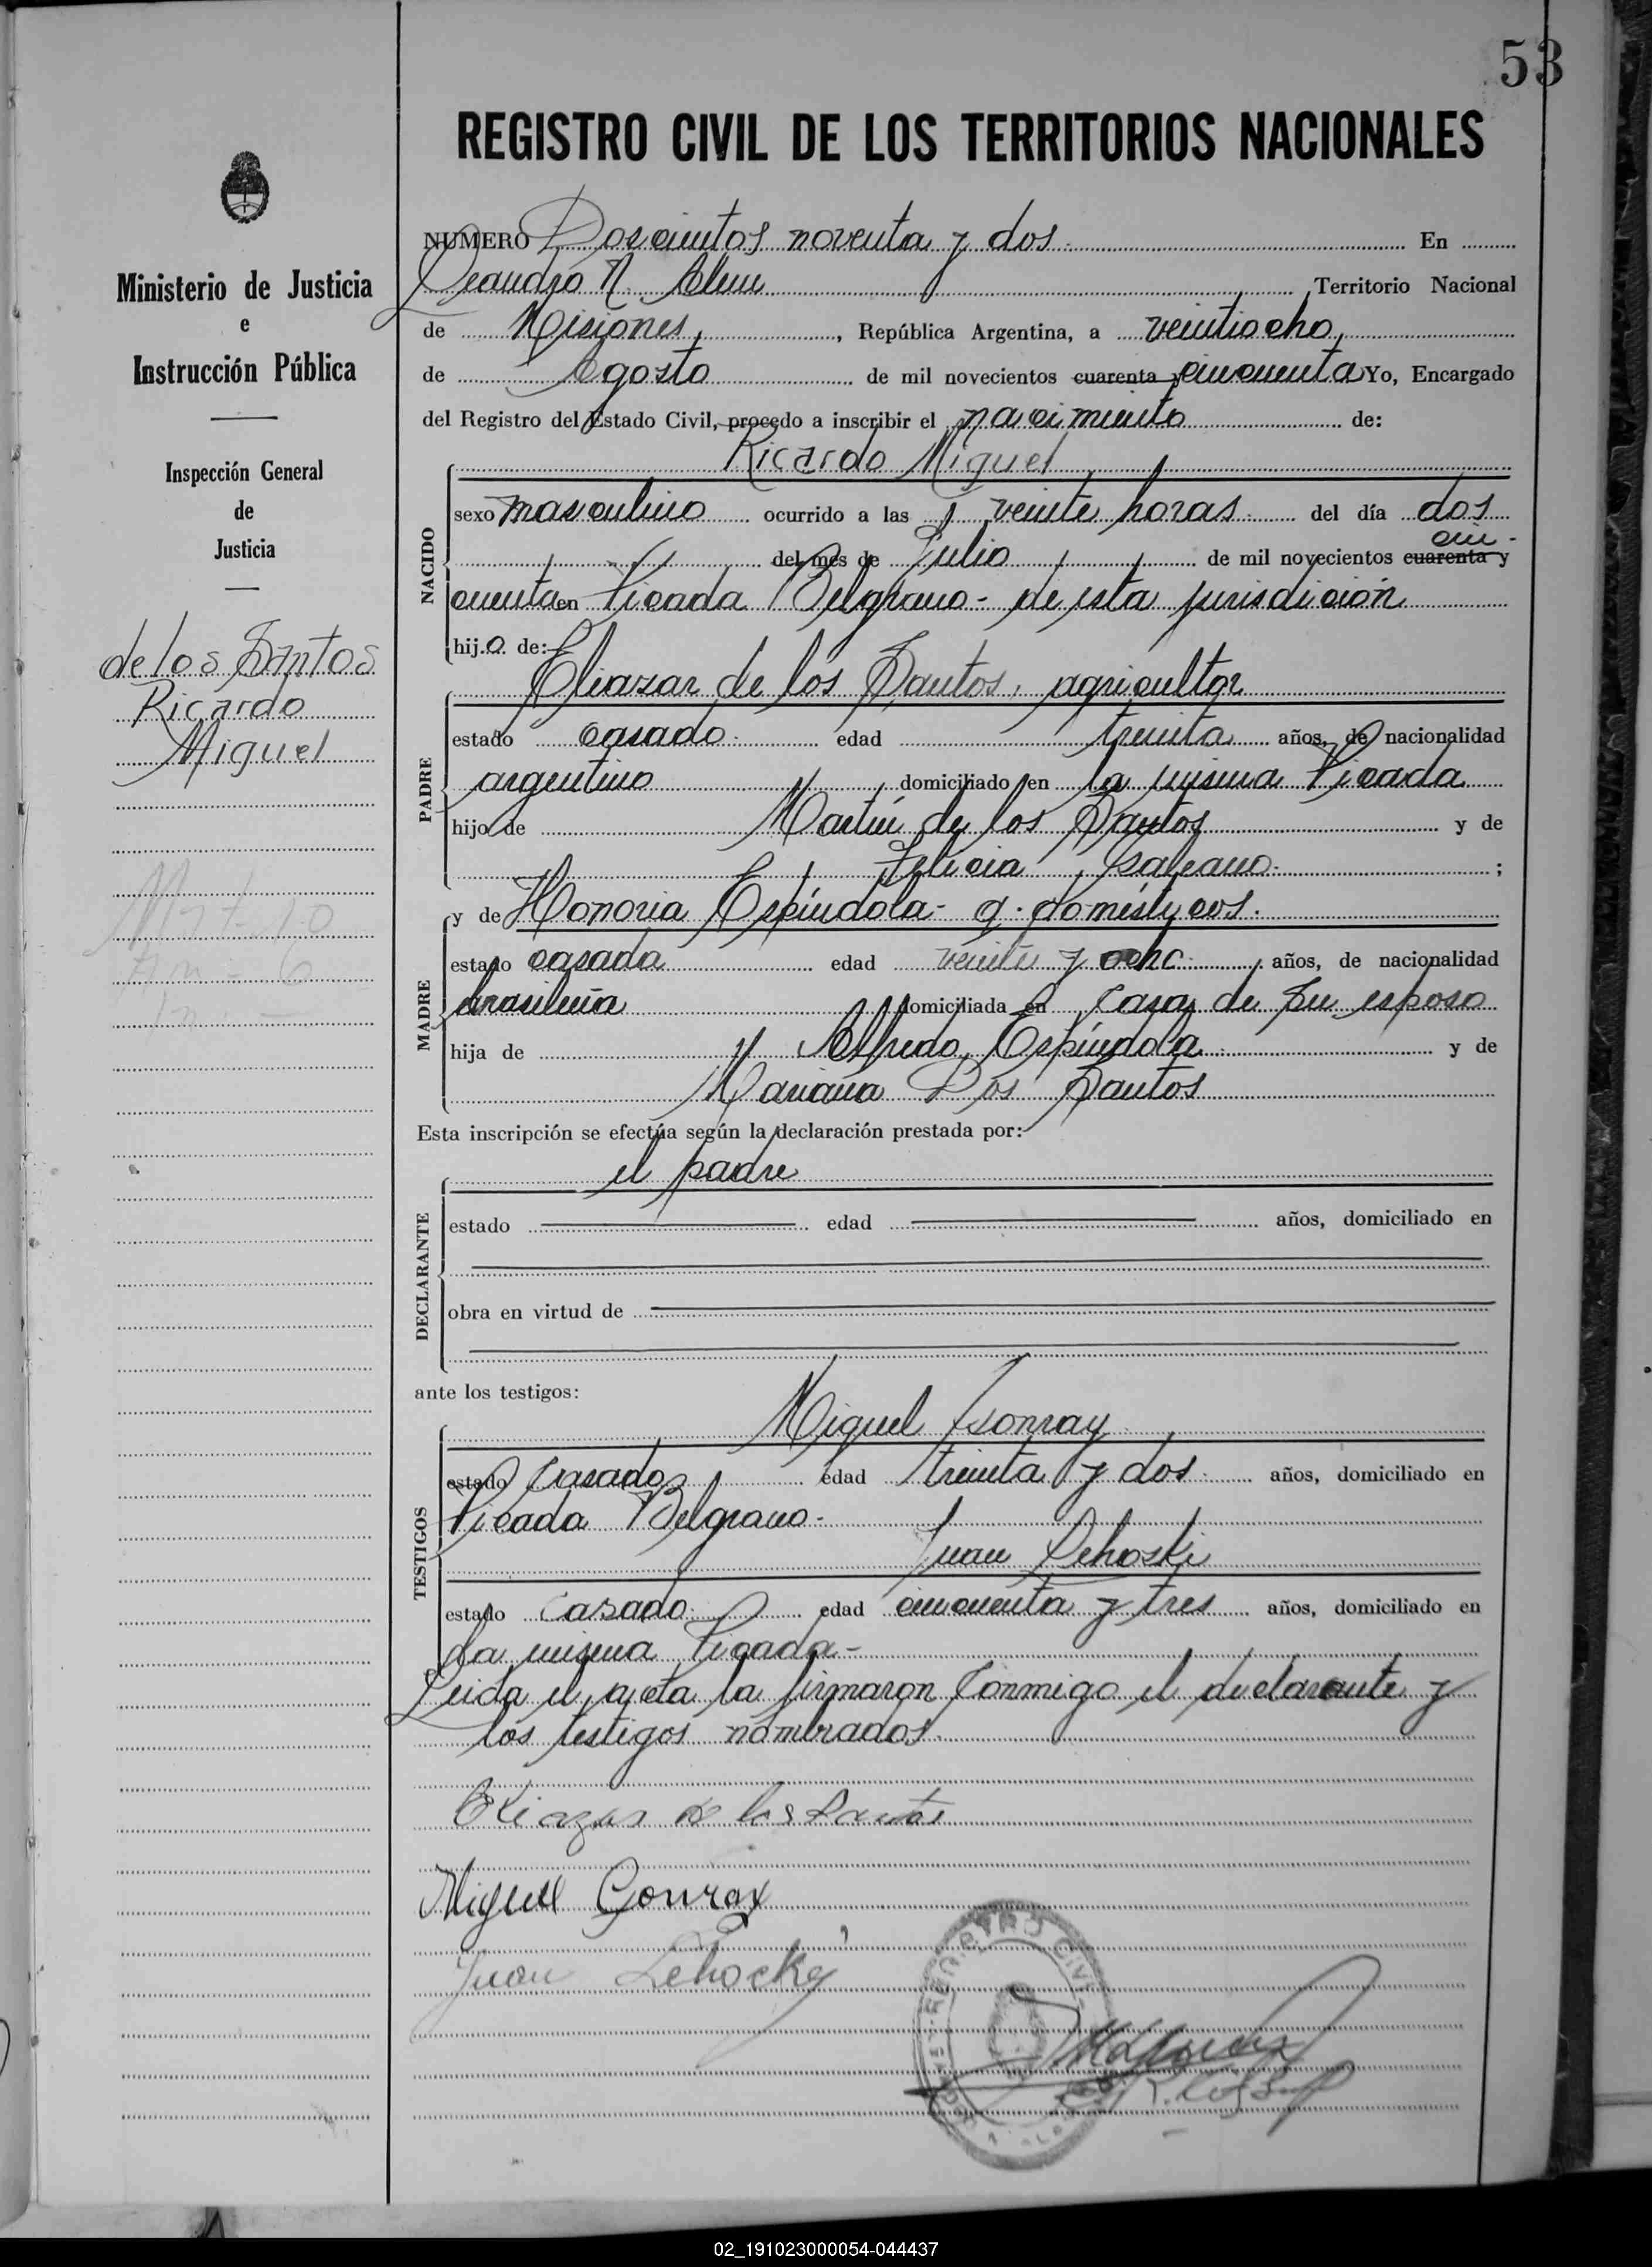 53
REGISTRO CIVIL DE LOS TERRITORIOS NACIONALES
Ministerio de Justicia
e
Instrucción Pública
Inspección General
de
Justicia
de los Santos
Ricardo
Miguel
NUMERO Doscientos noventa y dos. En
Leandro N. Alem Territorio Nacional
de Misiones, República Argentina, a veintiocho
de Agosto de mil novecientos cuarenta y cincuenta Yo, Encargado
del Registro del Estado Civil, procedo a inscribir el nacimiento de:
Ricardo Miguel
NACIDO
sexo masculino ocurrido a las veinte horas. del día dos
del mes de Julio de mil novecientos cuarenta y cin-
cuenta en Picada Belgrano - de esta jurisdicion
hij o de:
PADRE
Eliazar de los Santos, agricultor
estado casado. edad treinta años, de nacionalidad
argentino domiciliado en la misma Picada
hijo de Martín de los Santos y de
Felicia ;
MADRE
y de Honoria Espíndola - q. domésticos.
estado casada edad veinte y ocho. años, de nacionalidad
brasileña domiciliada en casa de su esposo
hija de Alfredo Espíndola y de
Mariana Dos Santos
Esta inscripción se efectúa según la declaración prestada por:
DECLARANTE
el padre
estado edad años, domiciliado en
obra en virtud de
ante los testigos:
TESTIGOS
Miguel Conray
estado casado edad treinta y dos. años, domiciliado en
Picada Belgrano.
Juan Lehoski
estado casado. edad cincuenta y tres años, domiciliado en
la misma Picada -
Leida el acta la firmaron conmigo el declarante y
los testigos nombrados.
Eliazar de los Santos
Miguel Conrax
Juan Lehocky
REGISTRO CIVIL
02_191023000054-044437